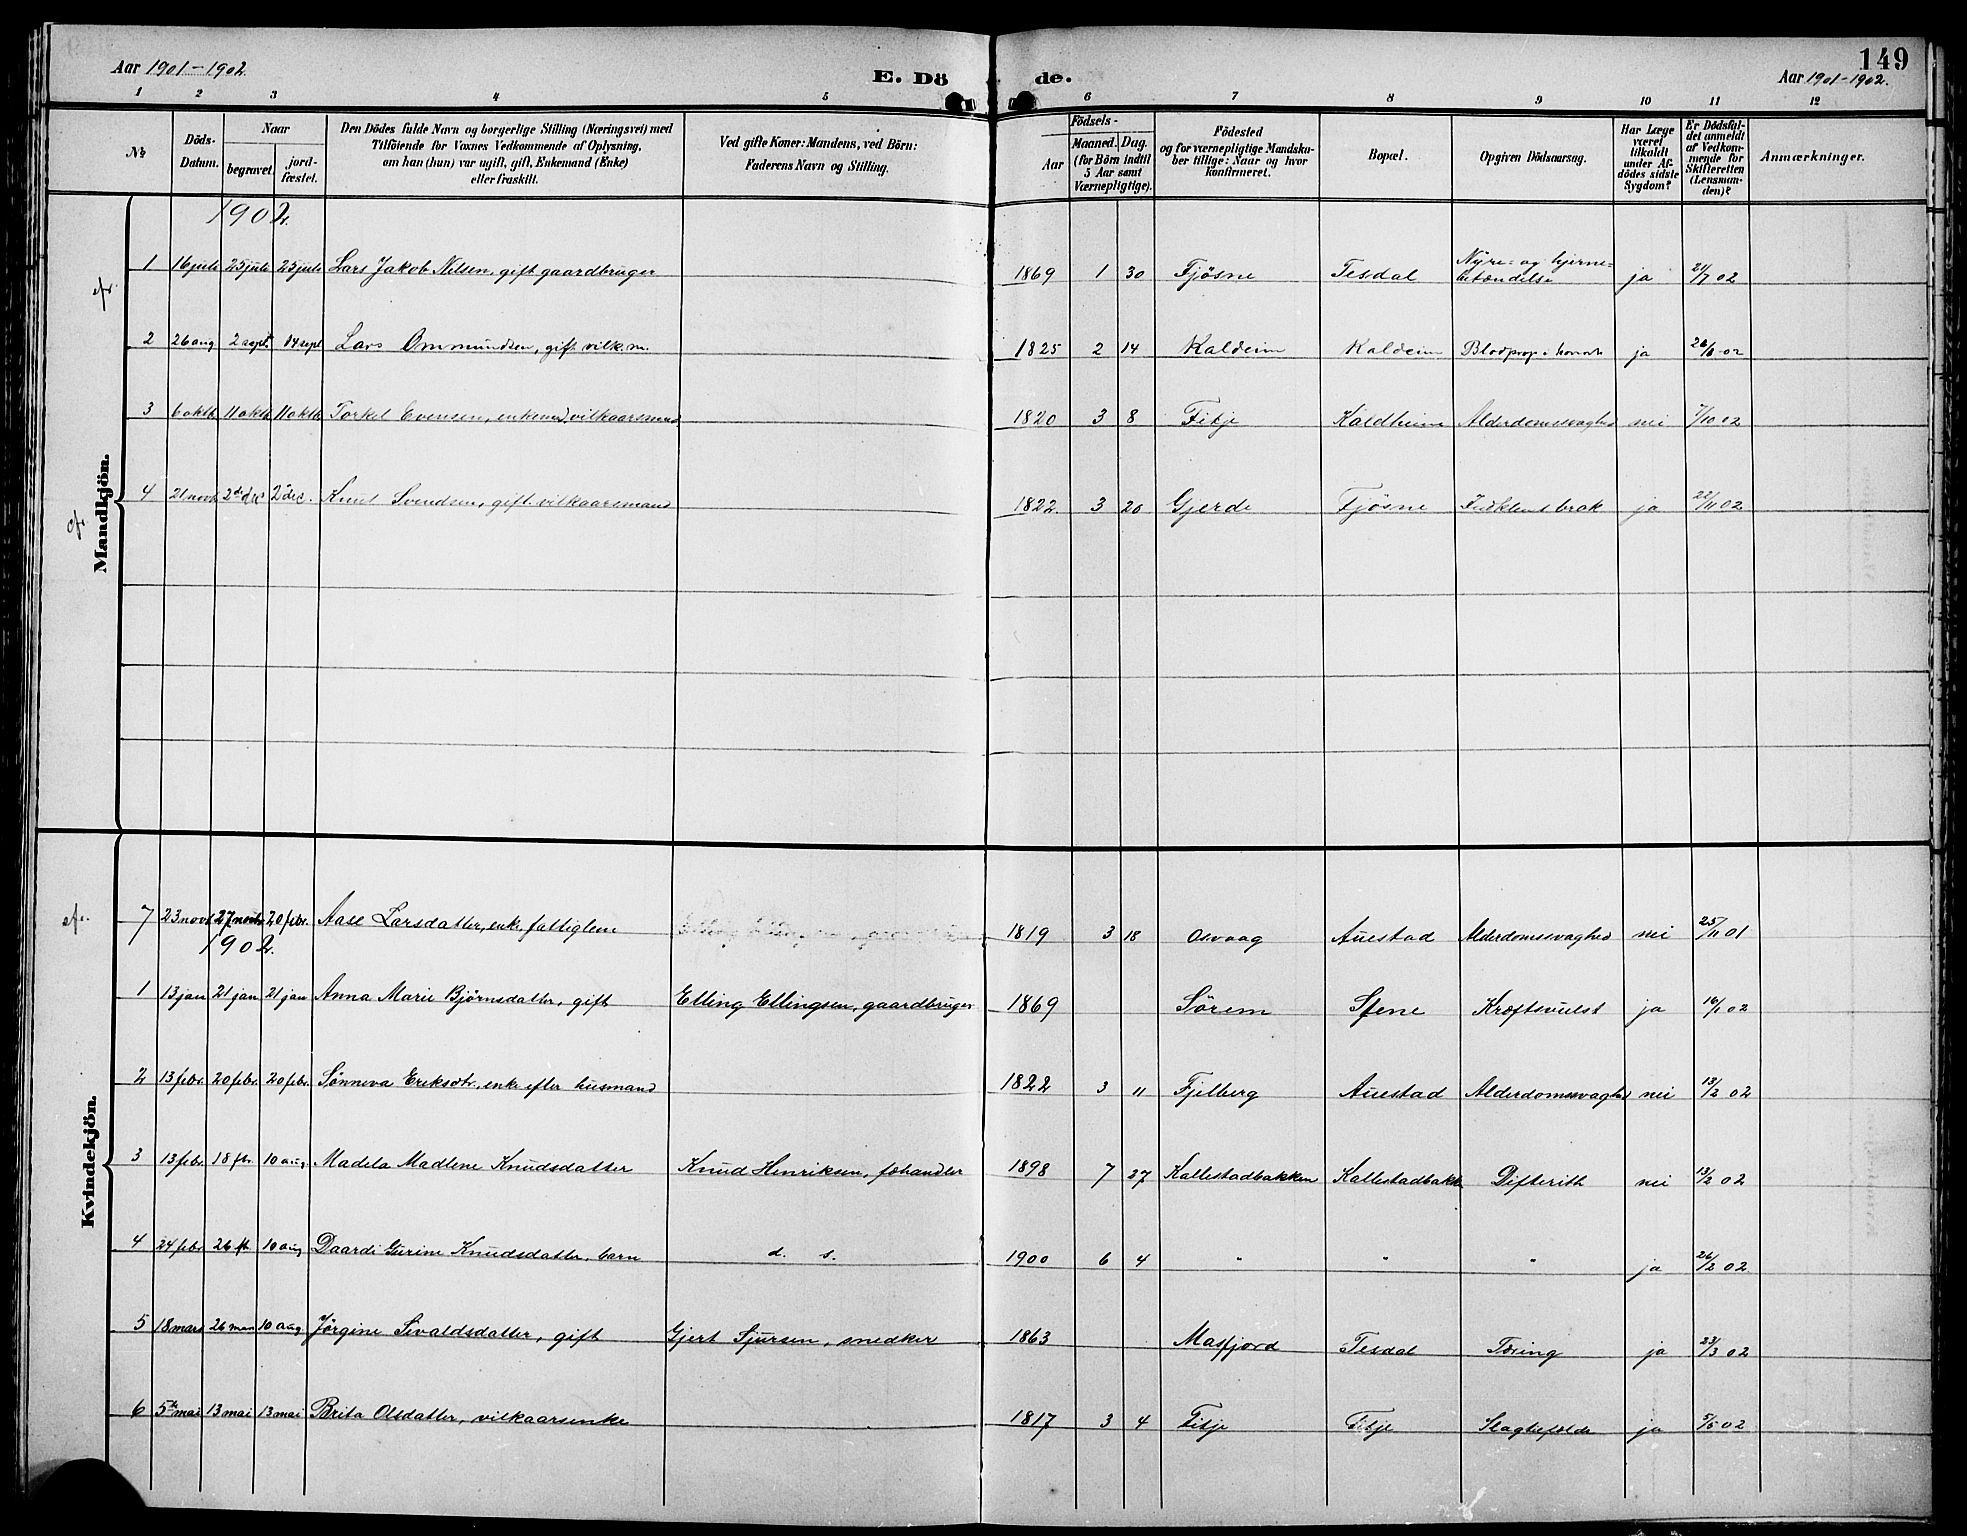 149
Aar 1901-1902. E. Dö de. Aar 1901-1902.
1 2 3 4 5 6 7 8 9 10 11 12
No
Döds-Datum.
Naar
begravet. jord-fæstet.
Den Dödes fulde Navn og borgerlige Stilling (Næringsvei) med
Tilföiende for Voxnes Vedkommende af Oplysning,
om han (hun) var ugift, gift, Enkemand (Enke)
eller fraskilt.
Ved gifte Koner: Mandens, ved Börn:
Faderens Navn og Stilling.
Födsels-
Aar Maaned. Dag.
(for Börn indtil
5 Aar samt
Værnepligtige).
Födested
og for værnepligtige Mandska-
ber tillige: Naar og hvor
konfirmeret.
Bopæl.
Opgiven Dödsaarsag.
Har Læge
været
tilkaldt
under Af-
dödes sidste
Sygdom?
Er Dödsfal-
det anmeldt
af Vedkom-
mende for
Skifteretten
(Lensman-
den)?
Anmærkninger.
Mandkjön.
1902.
1 16 juli 25 juli 25 juli Lars Jakob Nilsen, gift gaardbruger 1869 1 30 Fjösne Tesdal Nyre- og hjerne-
betændelse ja 21/7 02
2 26 aug 2 sept. 14 sept Lars Ommundsen, gift vilk.m. 1825 2 14 Kaldeim Kaldeim Blodprop i ja 26/8 02
3 6 oktb. 11 oktb. 11 oktb. Torkel Evensen, enkemd, vilkaarsmand 1820 3 8 Fitje Kaldheim Alderdomssvaghed nei 7/10 02
4 21 novb 2de dec 2 dec. Knut Svendsen, gift vilkaarsmand 1822. 3 20 Gjerde Fjösne ja 22/11 02
Kvindekjön.
7 23 novb 27 novbr 20 febr. Aase Larsdatter, enke fattiglem 1819 3 18 Osvaag Auestad Alderdomssvaghed nei 25/11 01
1902.
1 13 jan 21 jan 21 jan Anna Marie Björnsdatter, gift Elling Ellingsen, gaardbruger 1869 Sörem Stene Kræftsvulst ja 16/1 02
2 13 febr. 20 febr. 20 febr. Sönneva Eriksdtr., enke efter husmand 1822 3 11 Fjelberg Auestad Alderdomssvaghed nei 13/2 02
3 13 febr. 18 fbr. 10 aug. Madela Madlene Knudsdatter Knud Henriksen, fæhandler 1898 7 27 Kallestadbakken Kallestadbakk Difterith nei 13/2 02
4 24 febr 26 fb 10 aug Daardi Gurine Knudsdatter, barn d. s. 1900 6 4 " " " ja 26/2 02
5 18 mars 26 mars 10 aug. Jörgine Sivaldsdatter, gift Gjert Sjursen, snedker 1863 Masfjord Tesdal Tæring ja 23/3 02
6 5te mai 13 mai 13 mai Brita Olsdatter, vilkaarsenke 1817 3 4 Fitje Fitje Slagtilfælde ja 5/5 02